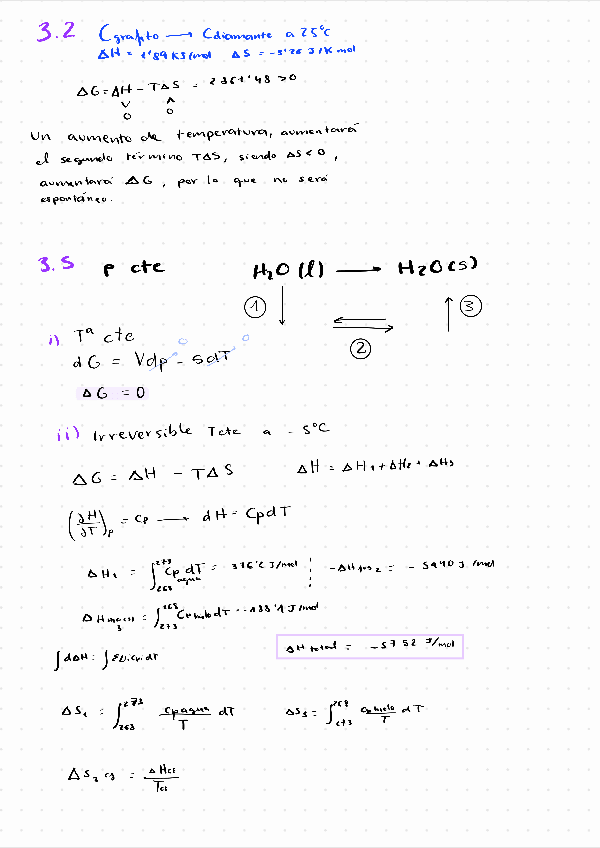 3.2 Cgrafito → Cdiamante a 25°C
ΔH = 1'89 KJ/mol ΔS = -3'26 J/K mol
ΔG = ΔH - TΔS = 2861'48 > 0
V Λ
0 0
Un aumento de temperatura, aumentará
el segundo término TΔS, siendo ΔS < 0,
aumentará ΔG, por lo que no será
espontáneo.
3.5 p cte H2O (l) → H2O (s)
① ③
②
i) Tª cte
dG = Vdp - SdT
0 0
ΔG = 0
ii) Irreversible T cte a -5°C
ΔG = ΔH - TΔS ΔH = ΔH1 + ΔH2 + ΔH3
(∂H/∂T)p = Cp → dH = CpdT
ΔH1 = ∫ Cp agua dT = 376'6 J/mol -ΔHfus2 = -5940 J/mol
ΔH total = -5752 J/mol
ΔS1 = ∫ Cp agua/T dT ΔS3 = ∫ Cp hielo/T dT